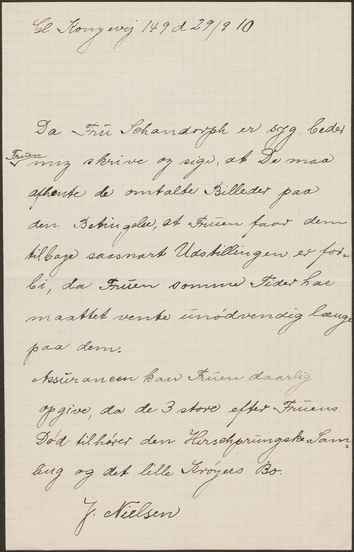 Gl Kongevej 149 d 29/9 10
Da Frü Schandorph er syg beder
Früen
mig skrive og sige, at De maa
afhente de omtalte Billeder paa
den Betingelse, at Früen faar dem
tilbage saasnart Udstillingen er for-
bi, da Früen somme Tider har
maattet vente ünödvendig længe
paa dem.
Assurancen kan Früen daarlig
opgive, da de 3 store efter Früens
Död tilhører den Hirschprungske Sam-
ling og det lille Krøyers Bo.
J. Nielsen